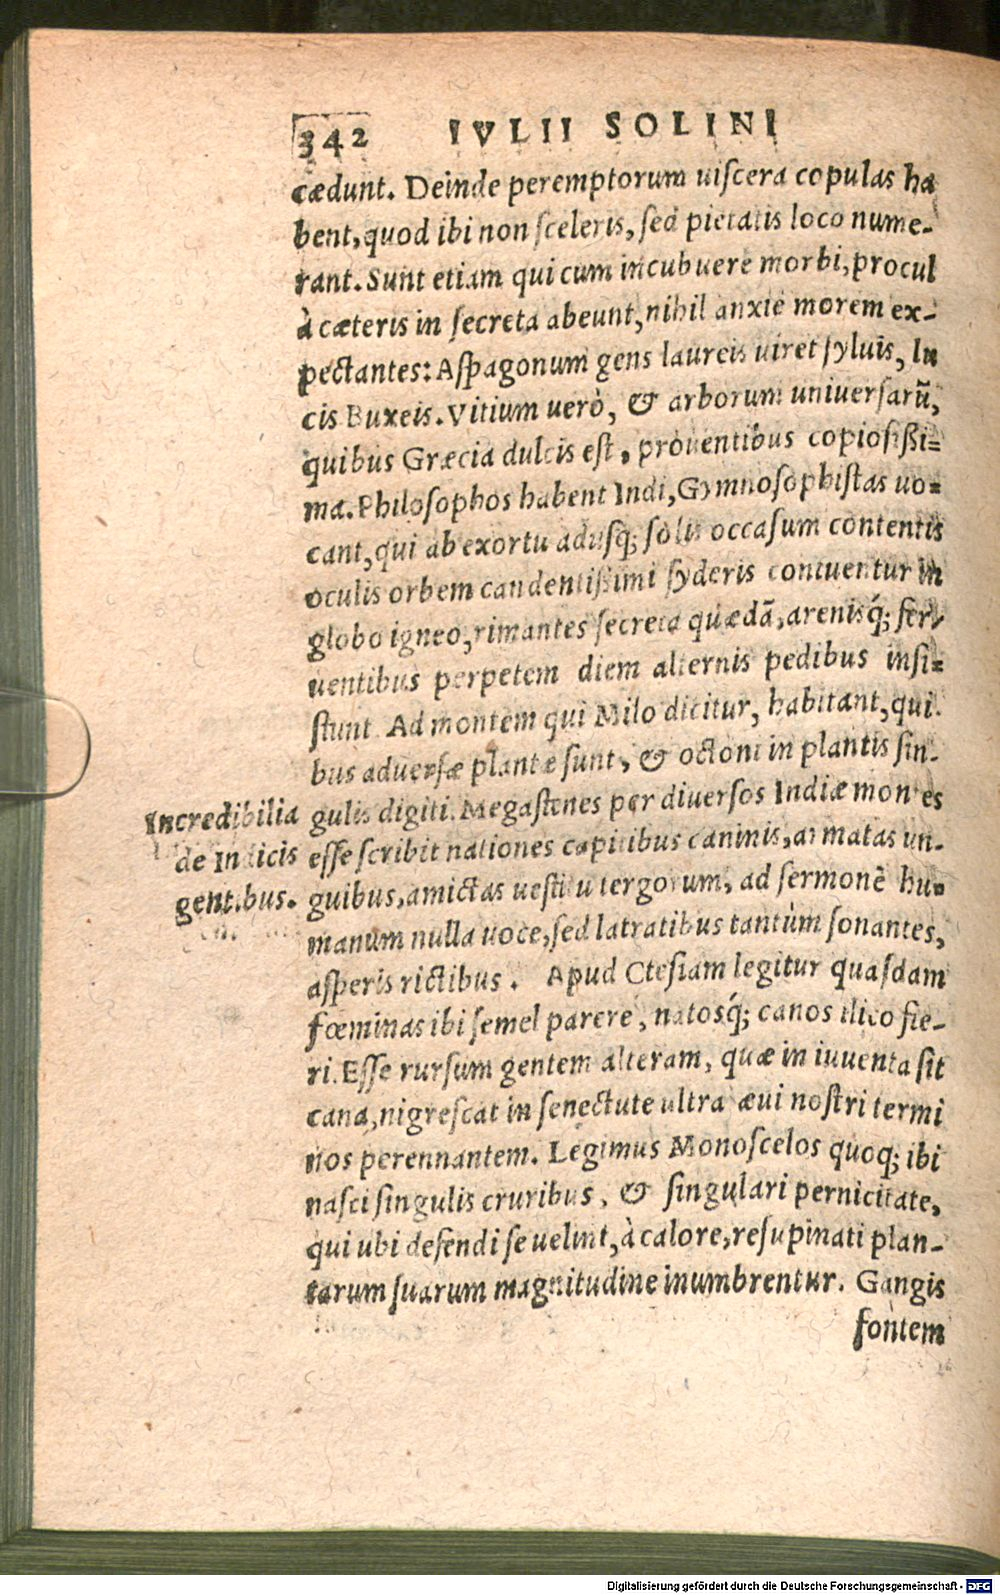 342 IVLII SOLINI
cædunt. Deinde peremptorum uiſcera copulas ha
bent, quod ibi non ſceleris, ſed pietatis loco nume-
rant. Sunt etiam qui cum incubuere morbi, procul
à cæteris in ſecreta abeunt, nihil anxie morem ex-
pectantes: Aſpagonum gens laureis uiret ſyluis, lu
cis Buxeis. Vitium uerò, & arborum uniuerſarũ,
quibus Græcia dulcis eſt, prouentibus copioſißi=
ma. Philoſophos habent Indi, Gymnoſophiſtas uo=
cant, qui ab exortu aduſq; ſolis occaſum contentis
oculis orbem candentißimi ſyderis contuentur in
globo igneo, rimantes ſecreta quædã, arenisq́; fer/
uentibus perpetem diem alternis pedibus inſi=
ſtunt Ad montem qui Milo dicitur, habitant, qui
bus aduerſæ plantæ ſunt, & octoni in plantis ſin-
gulis digiti. Megaſtenes per diuerſos Indiæ montes
Incredibilia
de Indicis
gentibus.
eſſe ſcribit nationes capitibus caninis, armatas un-
guibus, amictas ueſtitu tergorum, ad ſermonẽ hu=
manum nulla uoce, ſed latratibus tantùm ſonantes,
aſperis rictibus. Apud Cteſiam legitur quaſdam
fœminas ibi ſemel parere, natosq́; canos ilico fie-
ri. Eſſe rurſum gentem alteram, quæ in iuuenta ſit
cana, nigreſcat in ſenectute ultra æui noſtri termi
nos perennantem. Legimus Monoſcelos quoq; ibi
naſci ſingulis cruribus, & ſingulari pernicitate,
qui ubi defendi ſe uelint, à calore, reſupinati plan-
tarum ſuarum magnitudine inumbrentur. Gangis
fontem
Digitalisierung gefördert durch die Deutsche Forschungsgemeinschaft - DFG